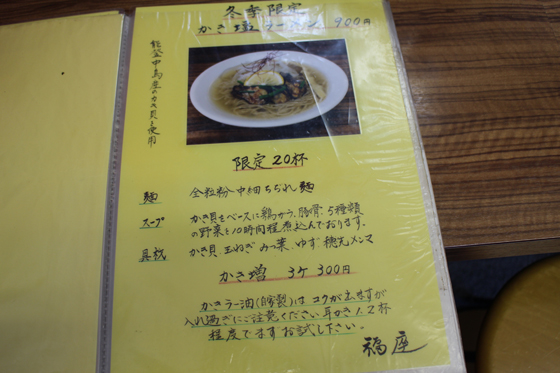 冬季限定
かき塩ラーメン 900円
能登中島産のかき貝を使用
限定20杯
麺 全粒粉中細ちぢれ麺
スープ かき貝をベースに鶏がら、豚骨、5種類
の野菜を10時間程煮込んでおります。
具材 かき貝、玉ねぎ みつ葉、ゆず 穂先メンマ
かき増 3ケ 300円
かきラー油(自製)は コクが出ますが
入れ過ぎにご注意ください 耳かき1.2杯
程度でます お試し下さい。
福座